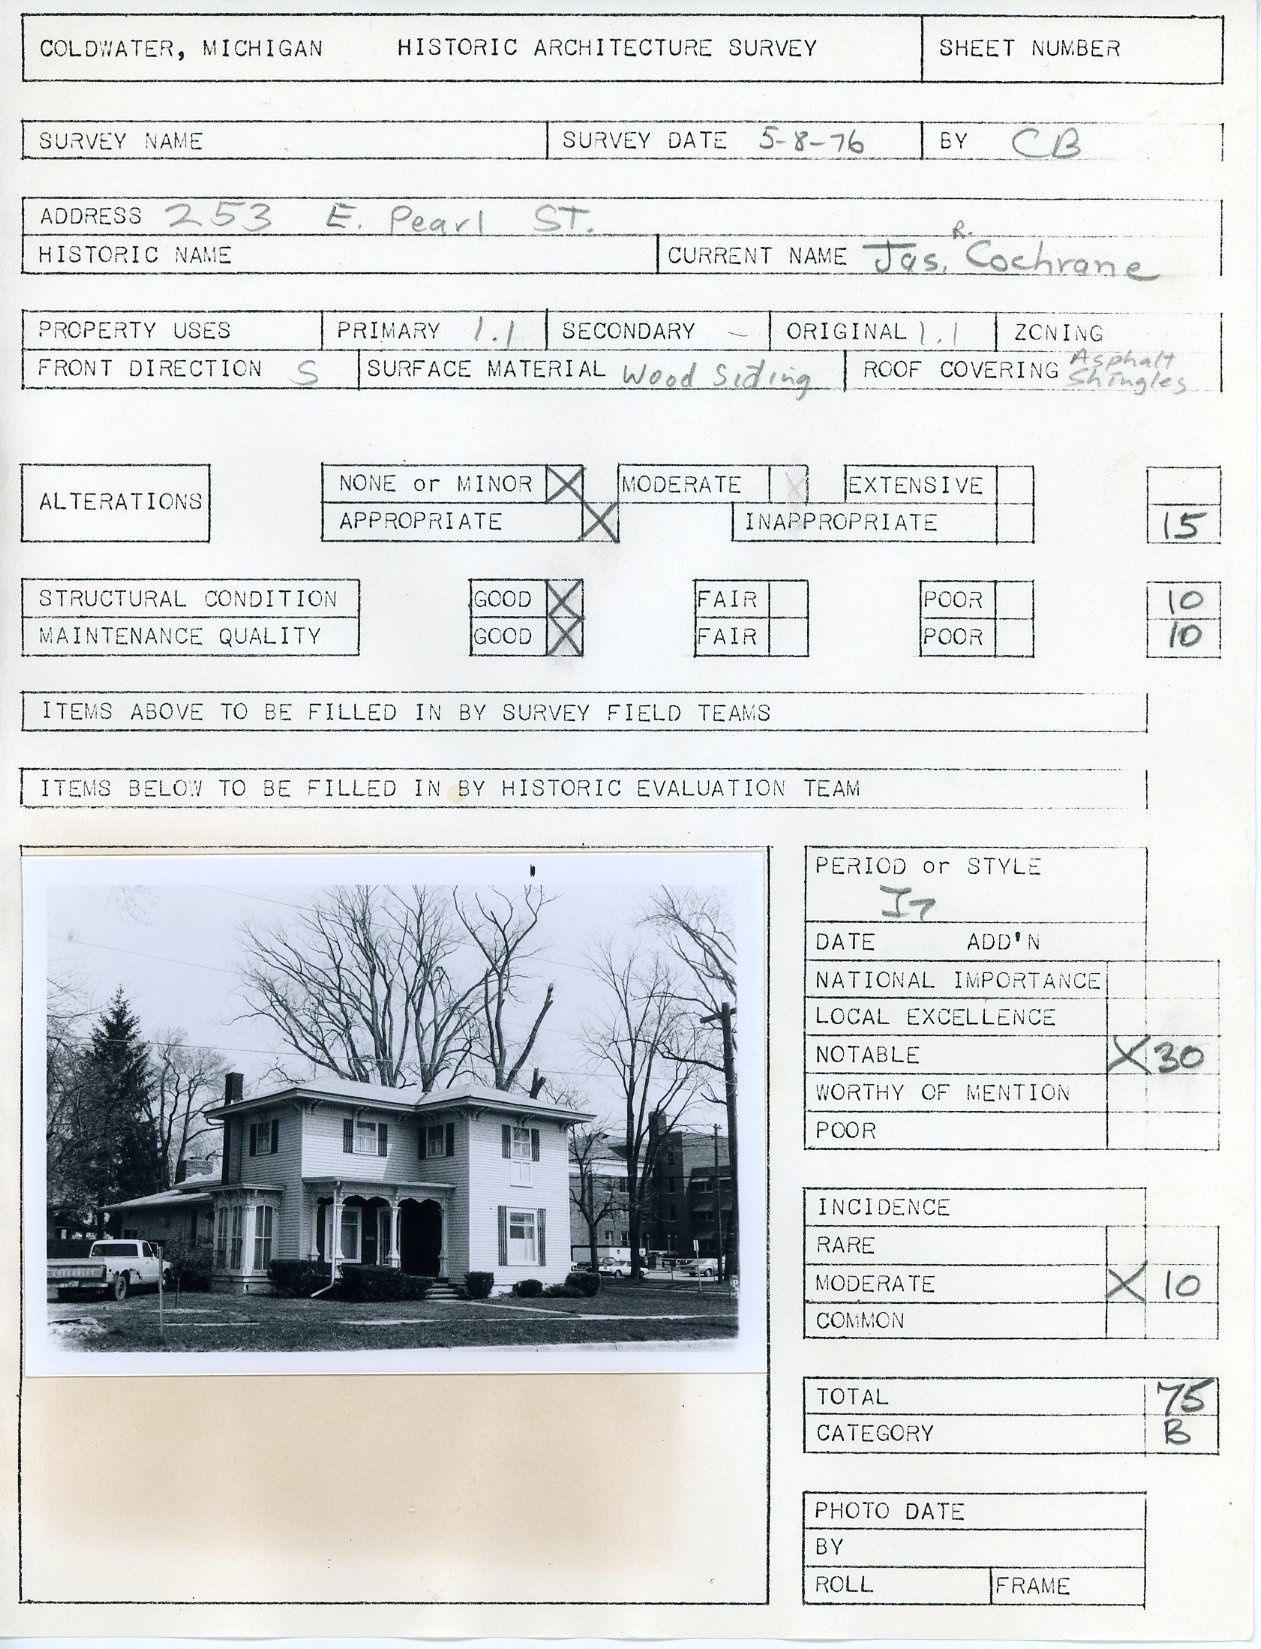 COLDWATER, MICHIGAN HISTORIC ARCHITECTURE SURVEY SHEET NUMBER
SURVEY NAME SURVEY DATE 5-8-76 BY CB
ADDRESS 253 E. Pearl ST.
HISTORIC NAME CURRENT NAME Jas. R. Cochrane
PROPERTY USES PRIMARY 1.1 SECONDARY – ORIGINAL 1.1 ZONING
FRONT DIRECTION S SURFACE MATERIAL Wood Siding ROOF COVERING Asphalt Shingles
ALTERATIONS NONE or MINOR X MODERATE EXTENSIVE
APPROPRIATE X INAPPROPRIATE 15
STRUCTURAL CONDITION GOOD X FAIR POOR 10
MAINTENANCE QUALITY GOOD X FAIR POOR 10
ITEMS ABOVE TO BE FILLED IN BY SURVEY FIELD TEAMS
ITEMS BELOW TO BE FILLED IN BY HISTORIC EVALUATION TEAM
PERIOD or STYLE
IT
DATE ADD'N
NATIONAL IMPORTANCE
LOCAL EXCELLENCE
NOTABLE X 30
WORTHY OF MENTION
POOR
INCIDENCE
RARE
MODERATE X 10
COMMON
TOTAL 75
CATEGORY B
PHOTO DATE
BY
ROLL FRAME